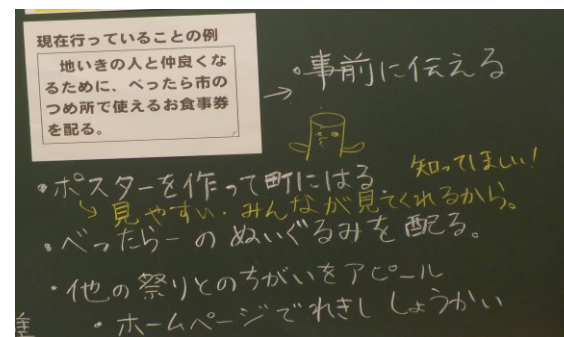 現在行っていることの例
地いきの人と仲良くな
るために、べったら市の
つめ所で使えるお食事券
を配る。
→・事前に伝える
・ポスターを作って町にはる
知ってほしい!
↳見やすい・みんなが見てくれるから。
・べったらーのぬいぐるみを配る。
・他の祭りとのちがいをアピール
・ホームページでれきししょうかい